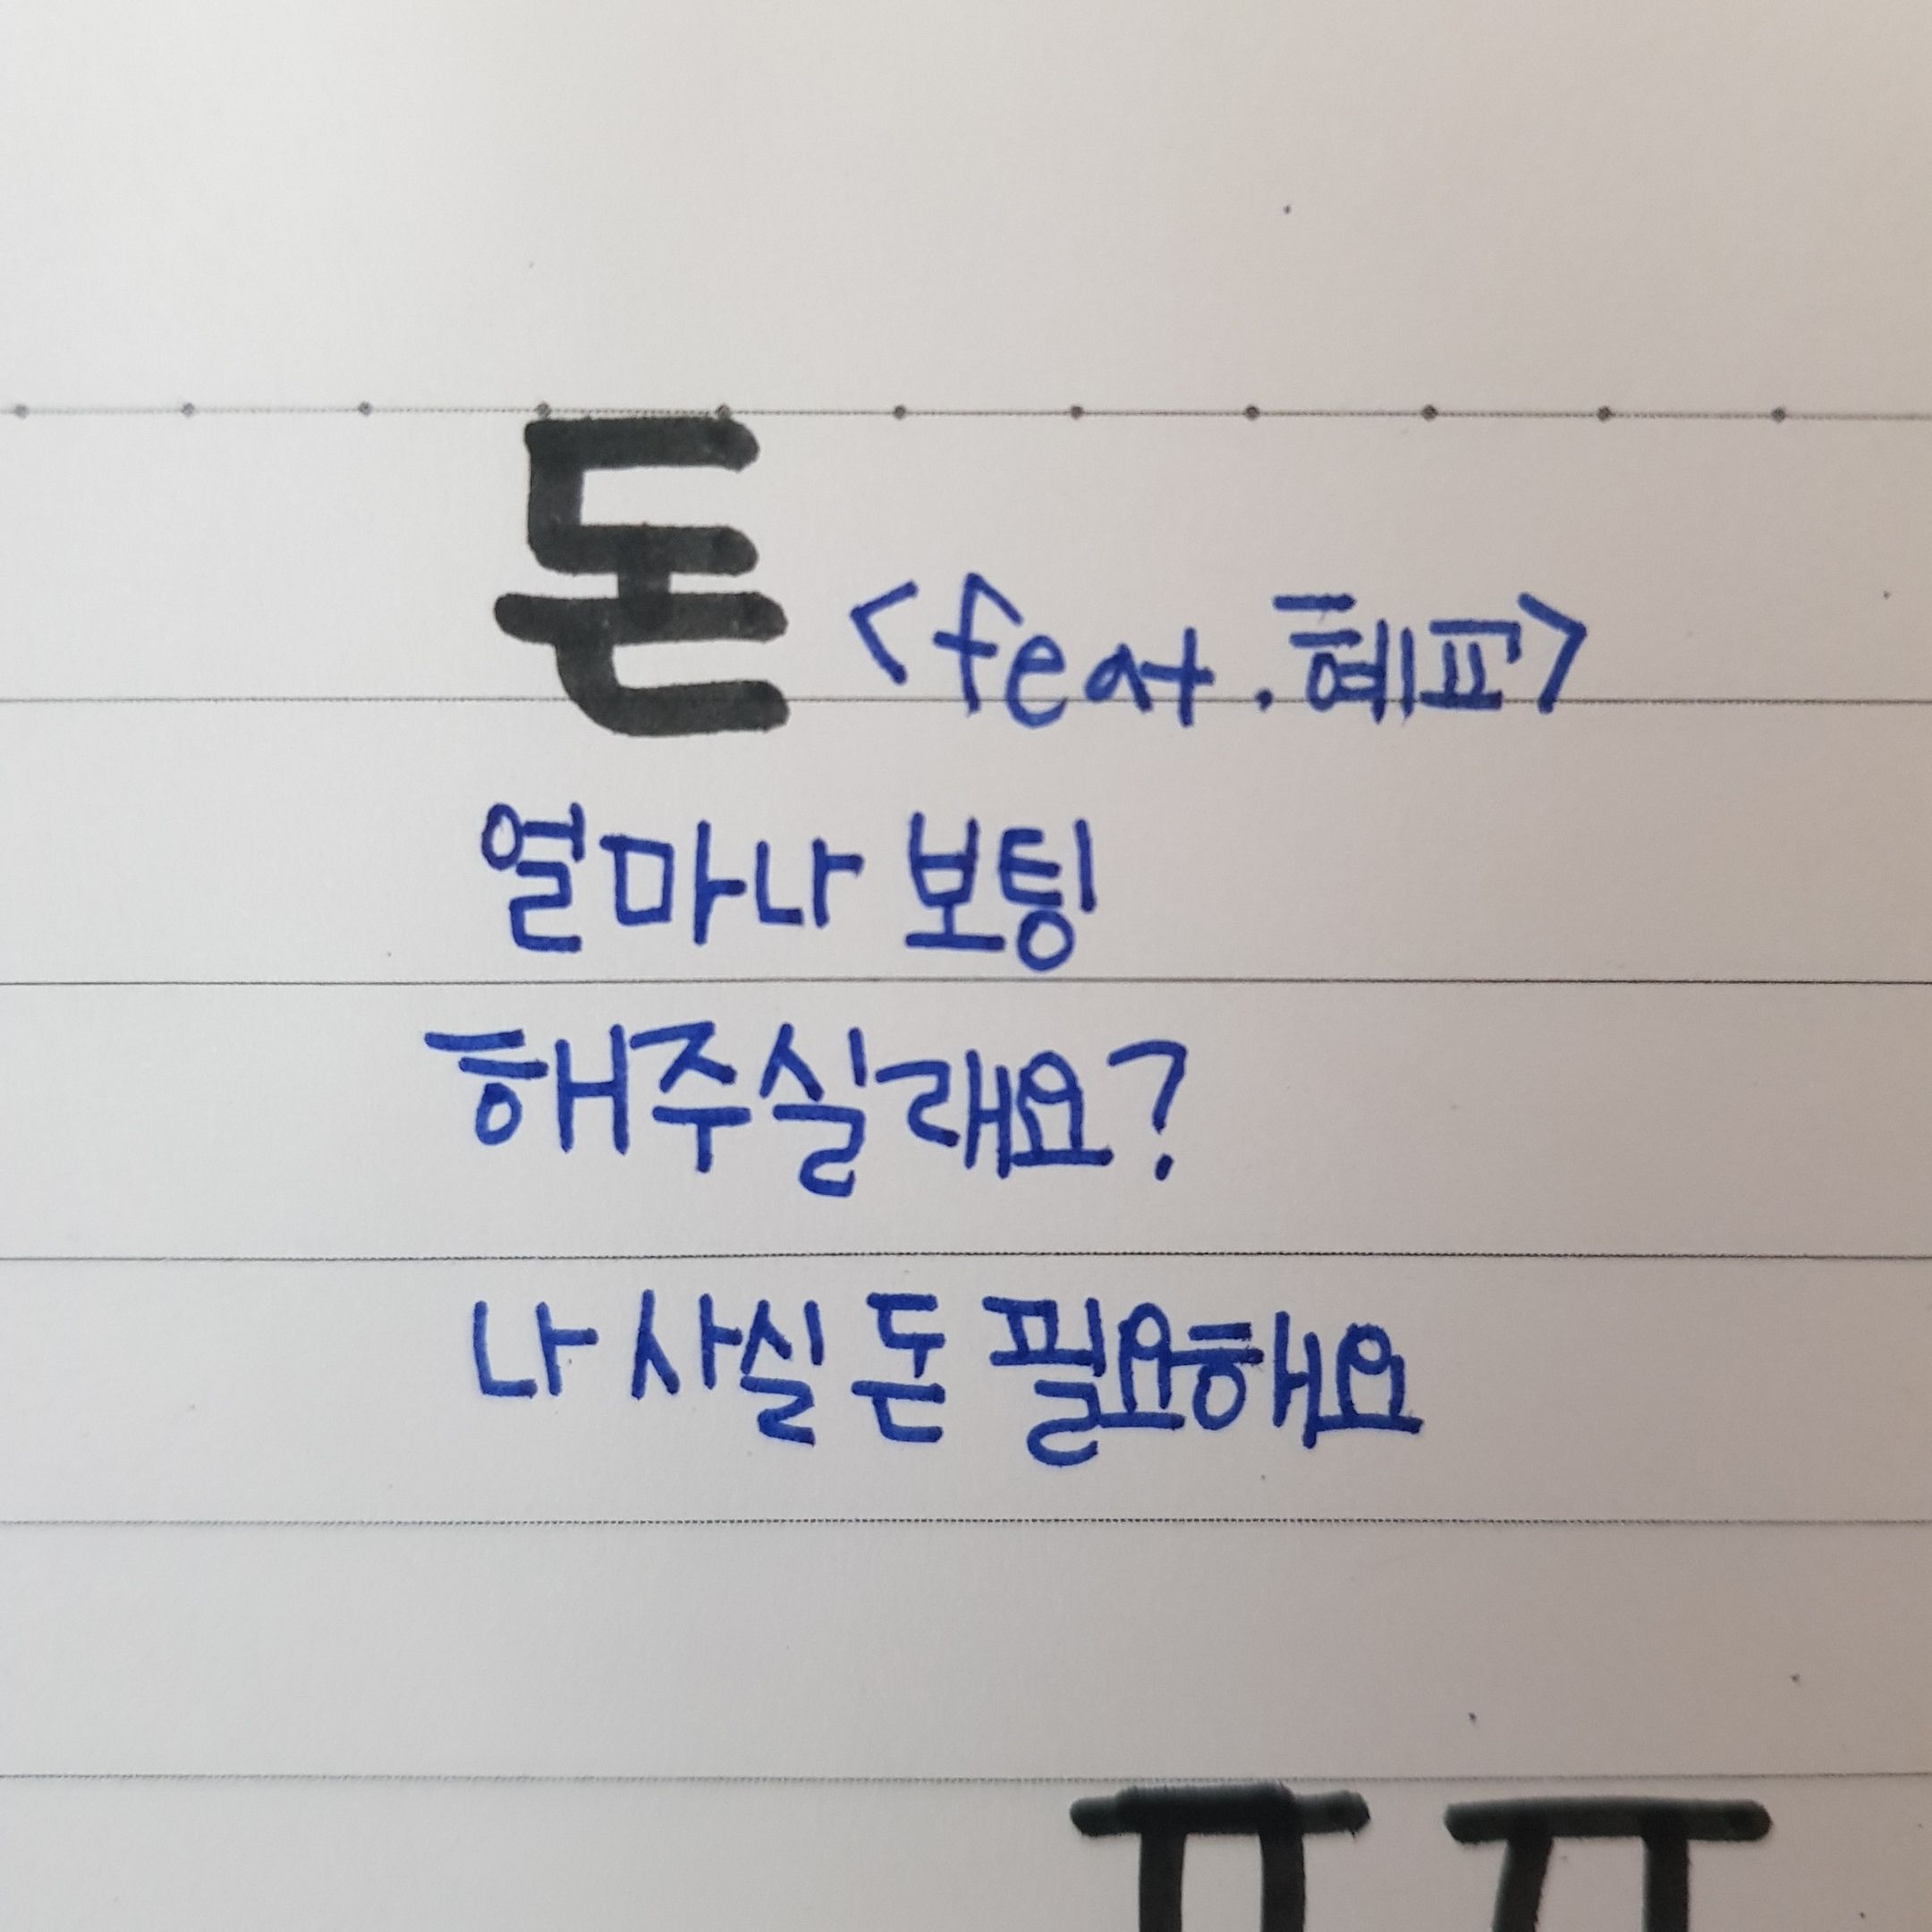 돈 <feat.혜교>
얼마나 보팅
해주실래요?
나 사실 돈 필요해요